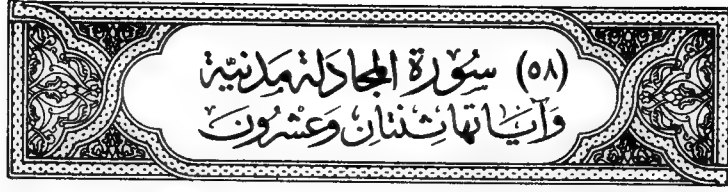 (٥٨) سُورَة المجَادلَة مَدنيَّة
وَآيَاتهَا ثِنتَانِ وَعشْرُونَ